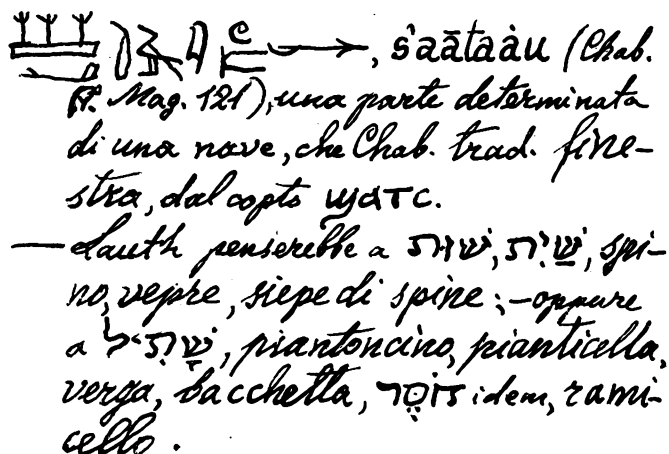 , s̓aātaȧu (Chab.
P. Mag. 121), una parte determinata
di una nave, che Chab. trad. fine-
stra, dal copto ϣⲁⲧⲥ.
— Lauth penserebbe a שַׁיִת, שׁוּת, spi-
no, vepre, siepe di spine; — oppure
a שָׁתִיל, piantoncino, pianticella,
verga, bacchetta, חֹטֶר idem, rami-
cello.